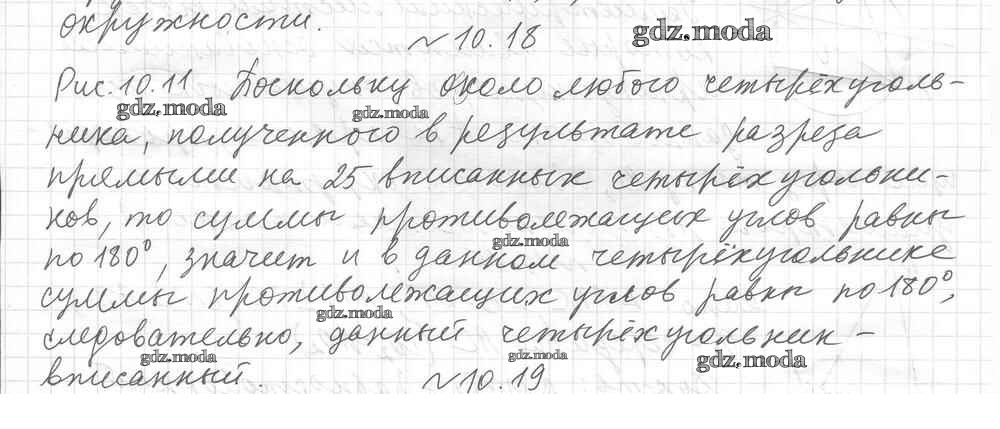 окружности.
№10.18
gdz.moda
Рис. 10.11 Поскольку около любого четырёхуголь-
gdz.moda
gdz.moda
ника, полученного в результате разреза
прямыми на 25 вписанных четырёхугольни-
ков, то суммы противолежащих углов равны
gdz.moda
по 180°, значит и в данном четырёхугольнике
суммы противолежащих углов равны по 180°,
gdz.moda
следовательно, данный четырёхугольник -
gdz.moda
gdz.moda
gdz.moda
вписанный.
№10.19